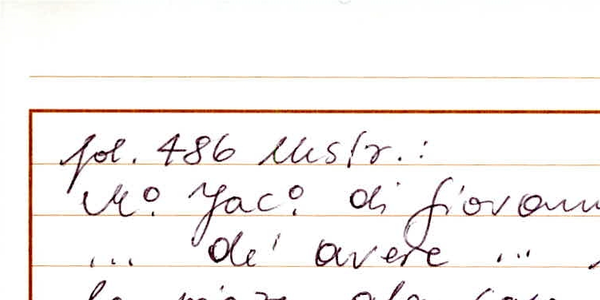 fol. 486 Mstr.:
Mº. Jacº. di Giovann
... de' avere ...
la